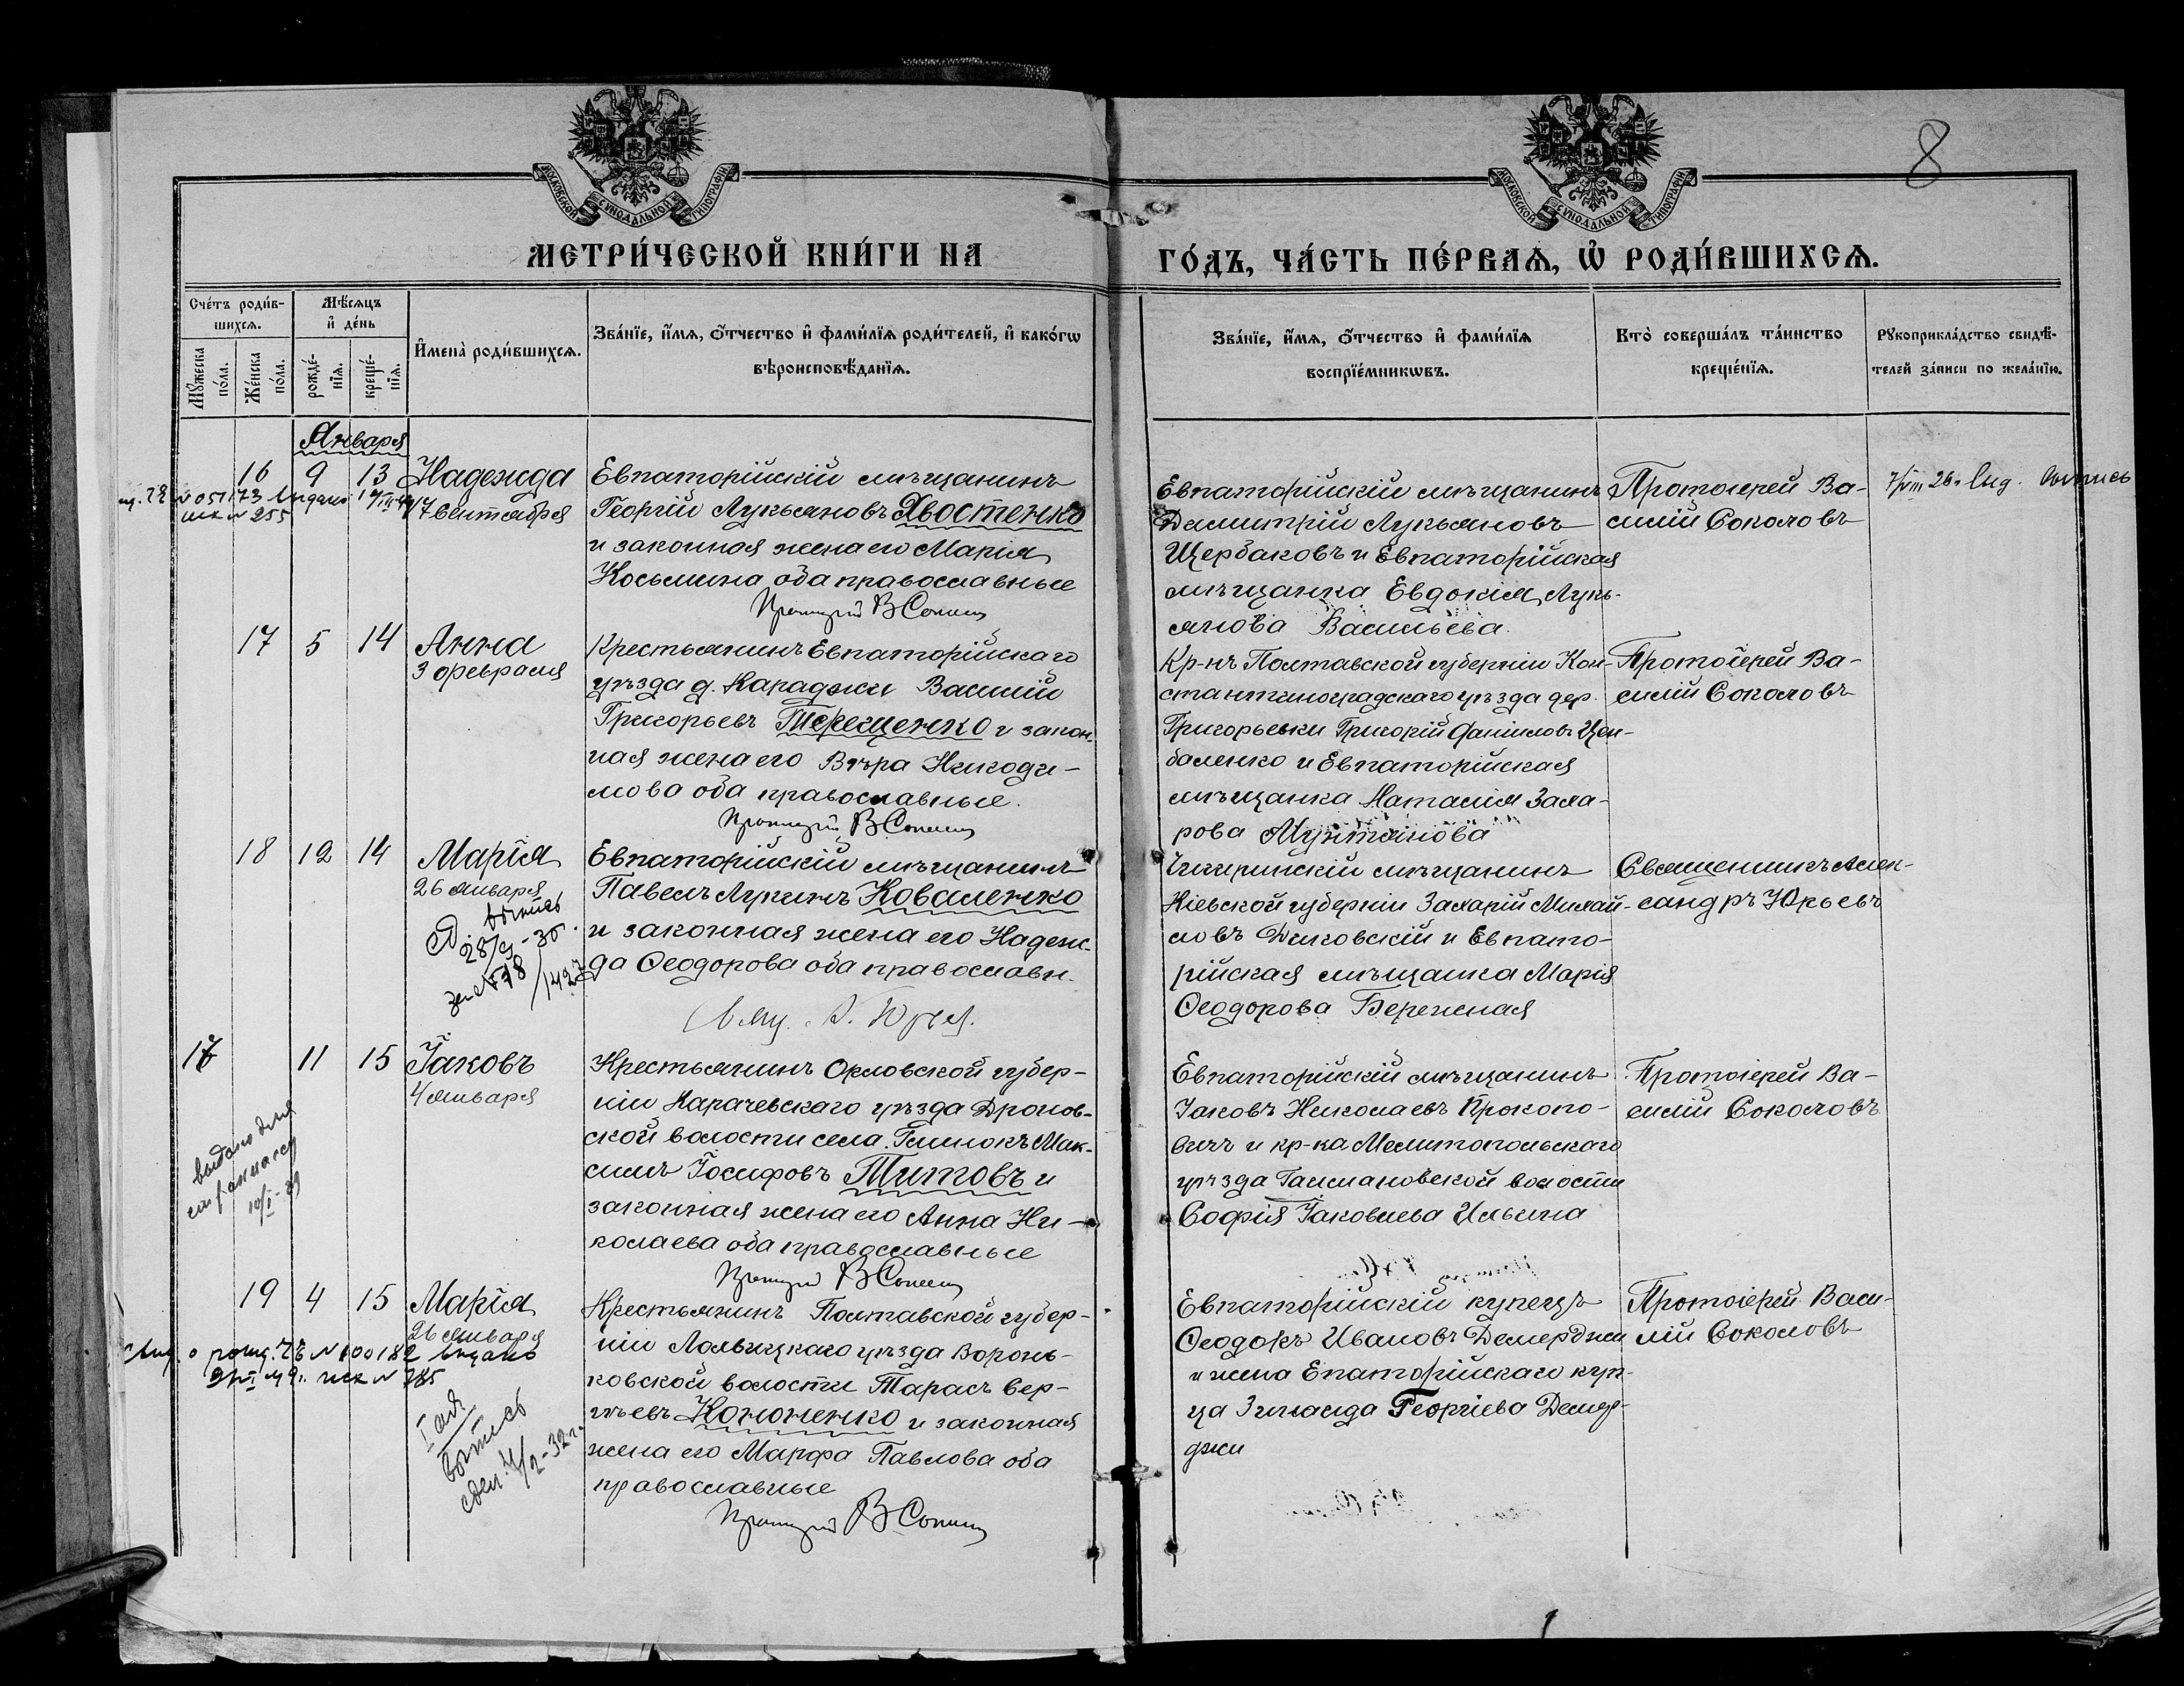 8
МОСКОВСКОЙ СѴНОДАЛЬНОЙ ТИПОГРАФІИ
МОСКОВСКОЙ СѴНОДАЛЬНОЙ ТИПОГРАФІИ
МЕТРИ́ЧЕСКОЙ КНИ́ГИ НА
ГО́ДЪ, ЧА́СТЬ ПЕ́РВАѦ, Ѡ҆ РОДИ́ВШИХСѦ.
Сче́тъ роди́в-
шихсѧ.
Мꙋ́жеска
по́ла.
Же́нска
по́ла.
Мѣ́сѧцъ
и҆ де́нь
рожде́-
нїѧ.
креще́-
нїѧ.
И҆мена̀ роди́вшихсѧ.
Зва́нїе, и҆́мѧ, ѻ҆́тчество и҆ фами́лїѧ роди́телей, и҆ како́гѡ
вѣроисповѣ́данїѧ.
Зва́нїе, и҆́мѧ, ѻ҆́тчество и҆ фами́лїѧ
воспрїе́мникѡвъ.
Кто̀ соверша́лъ та́инство
креще́нїѧ.
Рꙋкоприкла́дство свидѣ́-
телей за́писи по жела́нїю.
Января
16 9 13 Надежда
17 сентября
051173 выдано
№ 255
Евпаторійскій мѣщанинъ
Георгій Лукьяновъ Хвостенко
и законная жена его Марія
Косьмина оба православные
Протоіерей В Соколовъ
Евпаторійскій мѣщанинъ
Димитрій Лукьяновъ
Щербаковъ и Евпаторійская
мѣщанка Евдокія Лукь-
янова Васильева.
Протоіерей Ва-
силій Соколовъ
7/VIII 26 г выд. выпись
17 5 14 Анна
3 февраля
Крестьянинъ Евпаторійскаго
уѣзда д. Караджи Василій
Григорьевъ Терещенко и закон-
ная жена его Вѣра Никоди-
мова оба православные.
Протоіерей В Соколовъ
Кр-нъ Полтавской губерніи Кон-
стантиноградскаго уѣзда дер.
Григорьевки Григорій Даниловъ Цем-
баленко и Евпаторійская
мѣщанка Наталія Заха-
рова Мунтянова
Протоіерей Ва-
силій Соколовъ
18 12 14 Марія
26 января
выпись
28/
1427
Евпаторійскій мѣщанинъ
Павелъ Лукинъ Коваленко
и законная жена его Надеж-
да Ѳеодорова оба православн.
Свящ. А. Юрьев.
Чигиринскій мѣщанинъ
Кіевской губерніи Захарій Михай-
ловъ Диковскій и Евпато-
рійская мѣщанка Марія
Ѳеодорова Бережная
Священникъ Алек-
сандръ Юрьевъ
17 11 15 Іаковъ
4 января
выдано для
10/I-29
Крестьянинъ Орловской губер-
ніи Карачевскаго уѣзда Дронов-
ской волости села Глинокъ Мак-
симъ Іосифовъ Титовъ и
законная жена его Анна Ни-
колаева оба православные
Протоіерей В Соколовъ
Евпаторійскій мѣщанинъ
Іаковъ Николаевъ Прокопо-
вичъ и кр-ка Мелитопольскаго
уѣзда волости
Софія Іаковлева Ильина
Протоіерей Ва-
силій Соколовъ
19 4 15 Марія
26 января
№ 100182 выдано
№ 285
выпись
4/2-32 г.
Крестьянинъ Полтавской губер-
ніи уѣзда Воронь-
ковской волости Тарасъ Сер-
гѣевъ Кононенко и законная
жена его Марфа Павлова оба
православные
Протоіерей В Соколовъ
Евпаторійскій купецъ
Ѳеодокъ Ивановъ Демерджи
и жена Епаторійскаго куп-
ца Зинаида Георгіева Демер-
джи
Протоіерей Васи-
лій Соколовъ